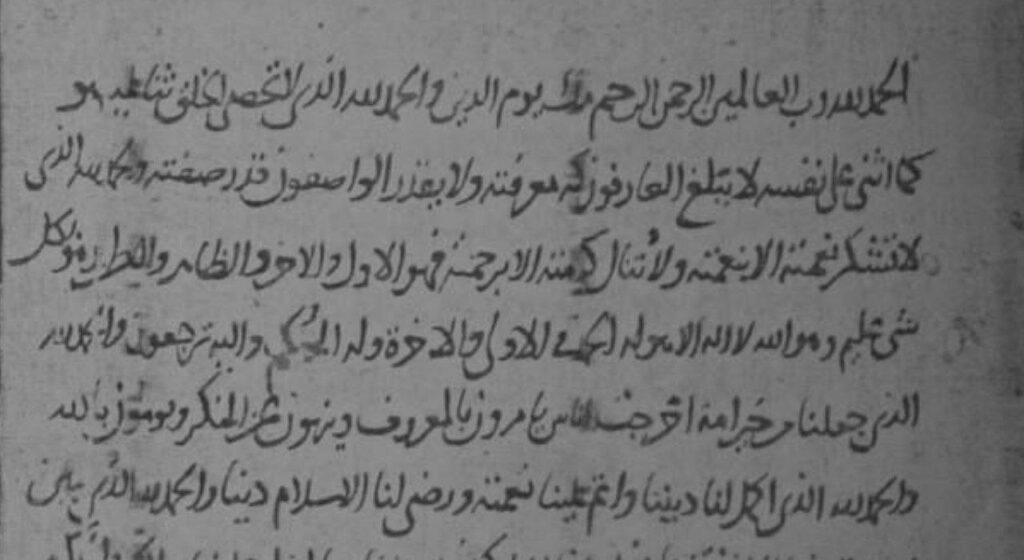 الحمد لله رب العالمين الرحمن الرحيم ملك يوم الدين والحمد لله الذي لا تحصي الخلق ثنا عليه هو
كما اثنى على نفسه لا يبلغ العارفون كنه معرفته ولا يقدر الواصفون قدر صفته والحمد لله الذي
لا تشكر نعمته الا بنعمته ولا تنال كرامته الا برحمته فهو الاول والاخر والظاهر والباطن وهو بكل
شي عليم وهو الله لا اله الا هو له الحمد في الاولى والاخرة وله الحكم واليه ترجعون والحمد لله
الذي جعلنا من خير امة اخرجت للناس يامرون بالمعروف وينهون عن المنكر ويومنون بالله
والحمد لله الذي اكمل لنا ديننا واتم علينا نعمته ورضي لنا الاسلام دينا والحمد لله الذي بين